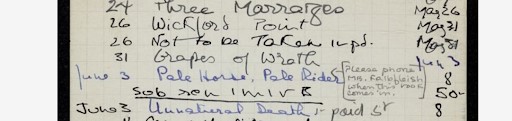 24 Three Marriages May 26
26 Wickford Point May 31
26 Not to be Taken 1 pd. May 31
31 Grapes of Wrath June 3
June 3 Pale Horse, Pale Rider [Please phone Mrs. when this book comes in.] 8
50-
June 3 Unnatural Death - paid 5c 8